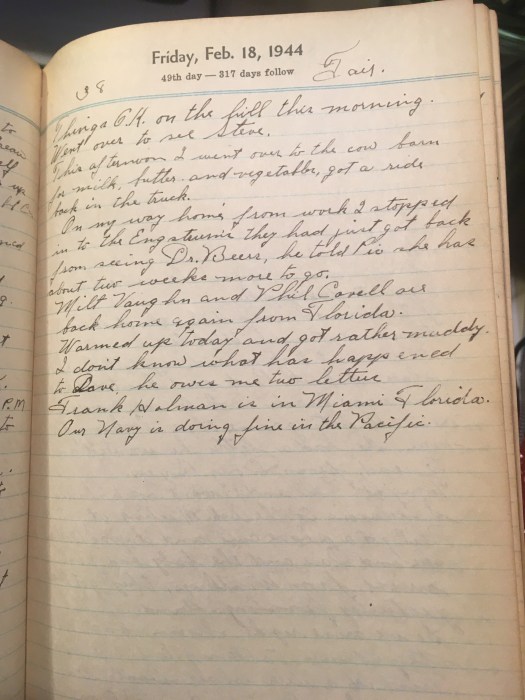 Friday, Feb. 18, 1944
49th day — 317 days follow
Fair.
38
Things O.K. on the hill this morning.
Went over to see Steve.
This afternoon I went over to the cow barn
for milk, butter and vegetables, got a ride
back in the truck.
On my way home from work I stopped
in to the they had just got back
from seeing Dr. Beers, he told she has
about two weeks more to go.
Milt Vaughn and Phil Cavell are
back home again from Florida.
Warmed up today and got rather muddy.
I don't know what has happened
to Dave he owes me two letters
Frank Holman is in Miami Florida.
Our Navy is doing fine in the Pacific.
P.M
to